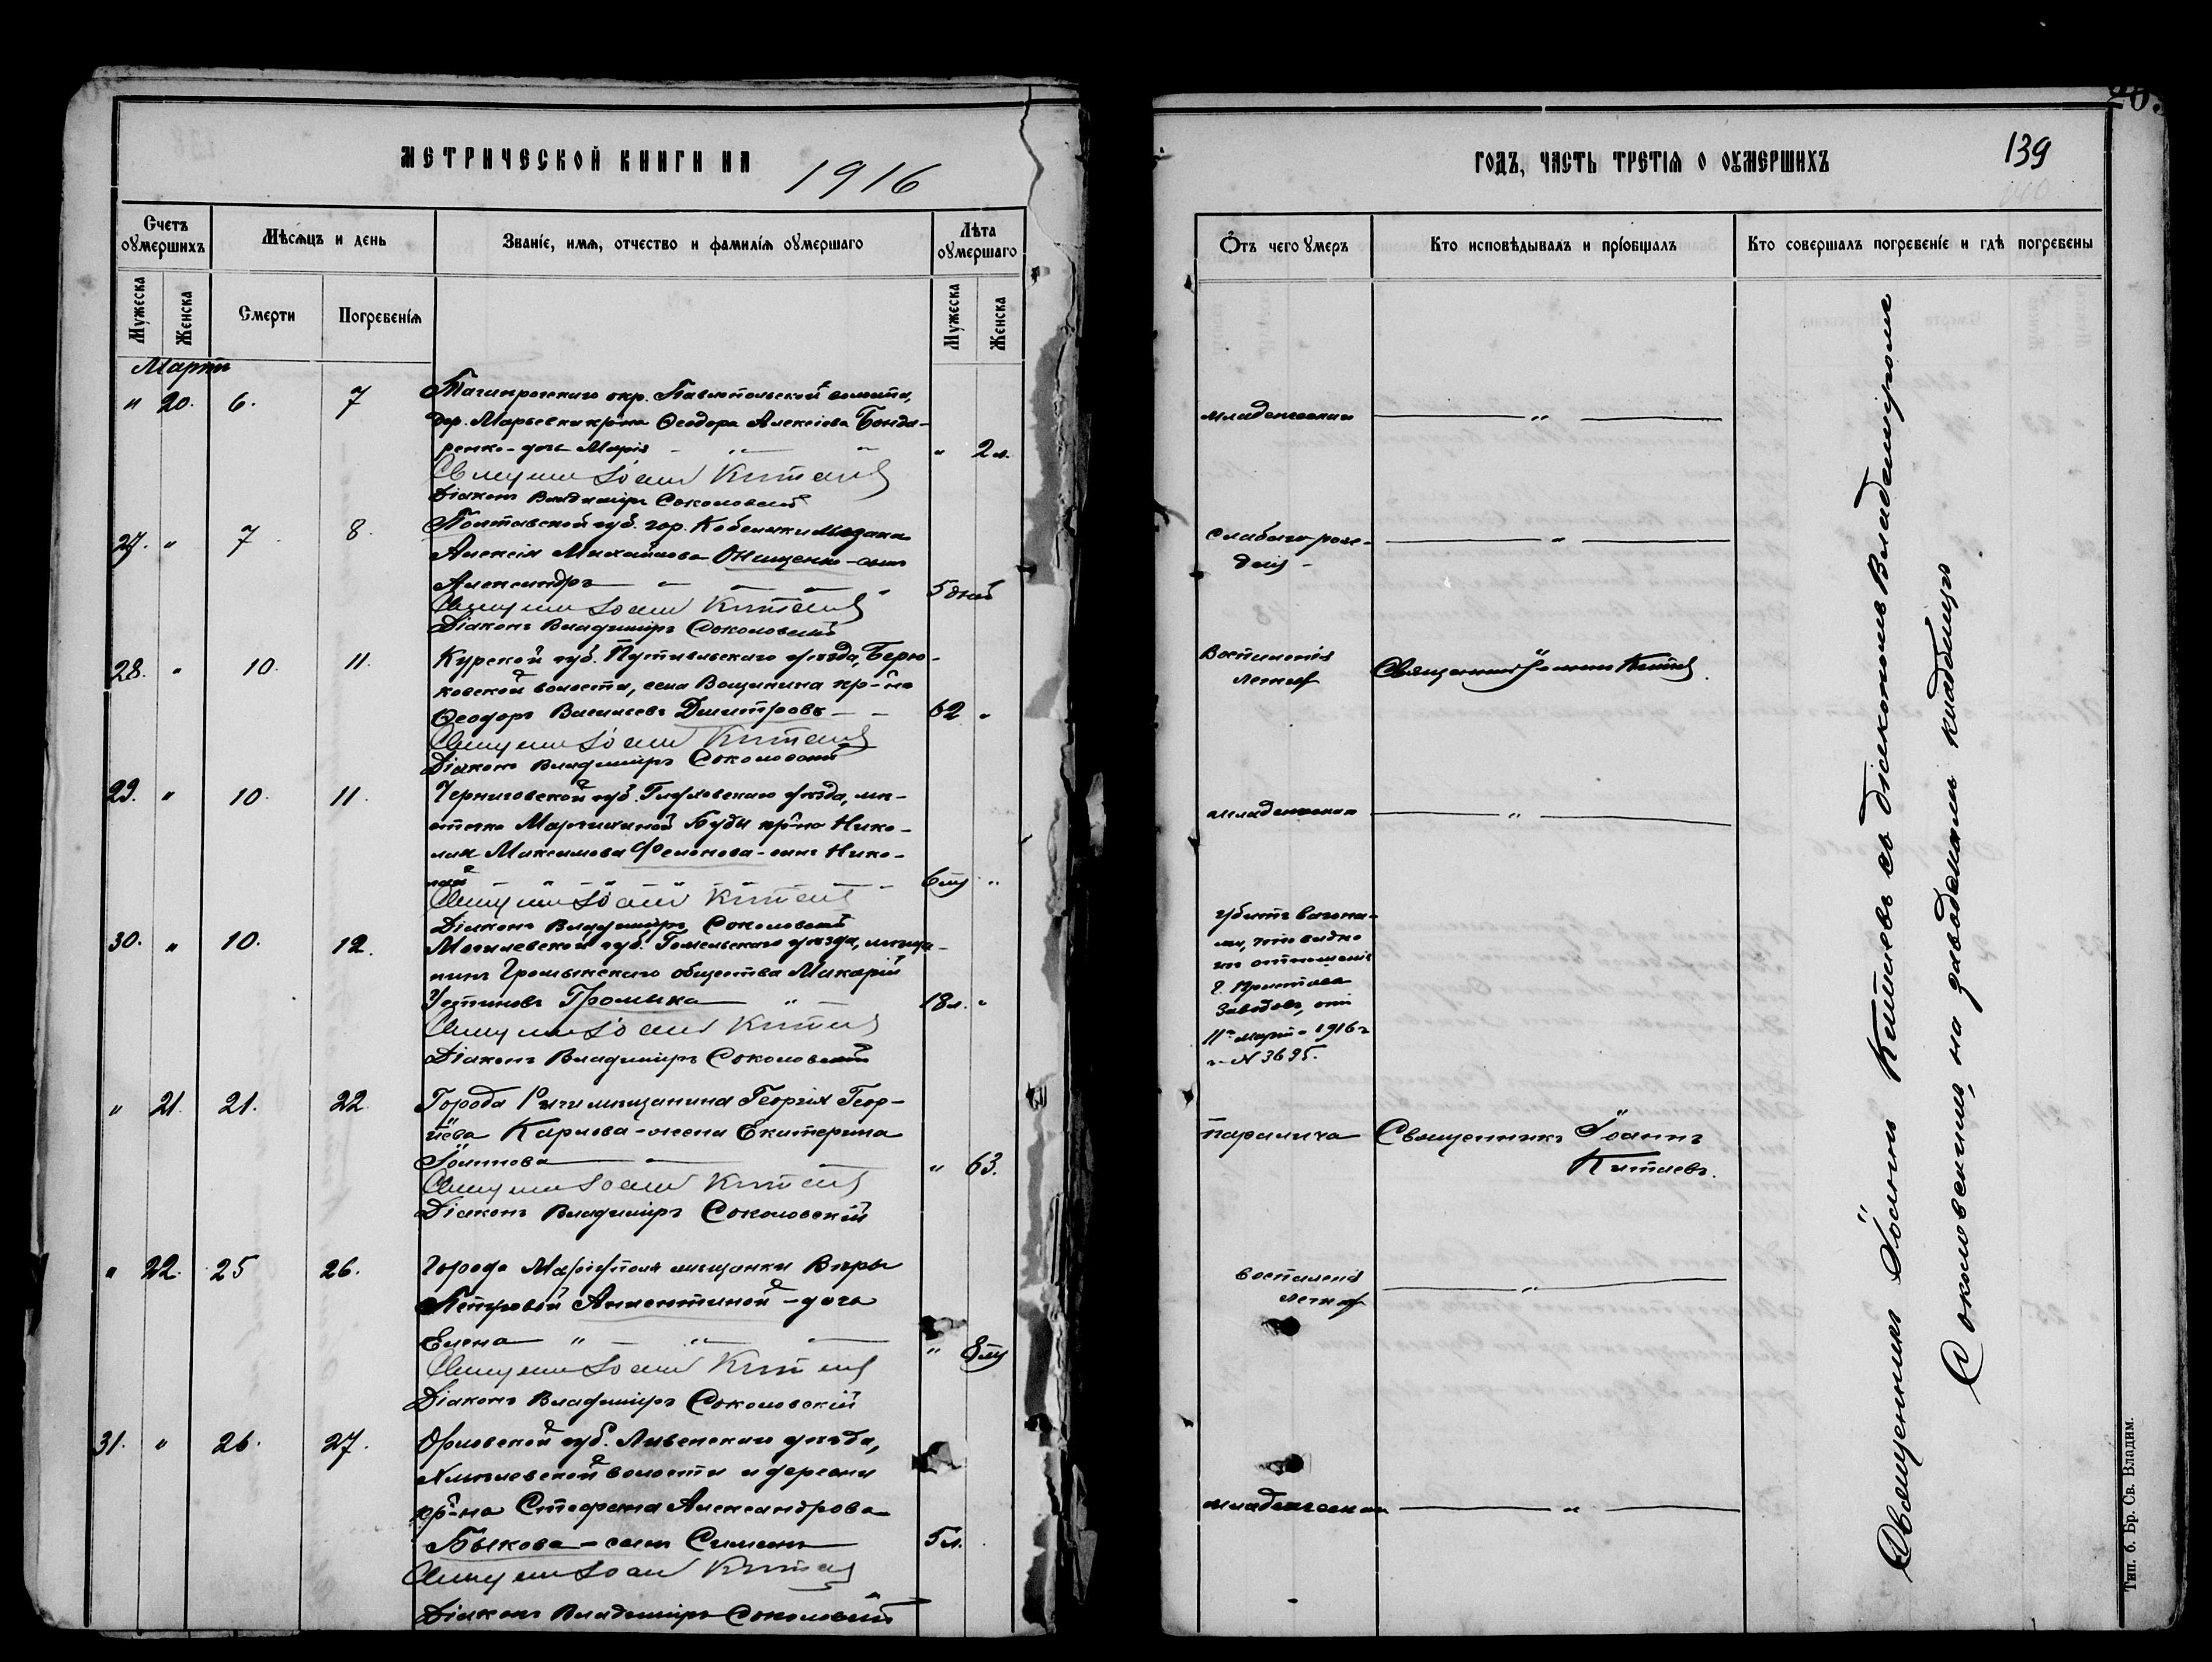 МЕТРИЧЕСКОЙ КНИГИ НА 1916
Счетъ оумершихъ
Мѣсяцъ и день
Званіе, имя, отчество и фамилія оумершаго
Лѣта оумершаго
Мужеска
Женска
Смерти
Погребенія
Мужеска
Женска
Мартъ
" 20. 6. 7
Таганрогскаго окр. Павлопольской волости,
дер. Марьевки кр-на Ѳеодора Алексіева Бонда-
ренко - дочь Марія - " "
" 2 л.
Священникъ Іоаннъ Китаевъ
Діаконъ Владиміръ Соколовскій
27. " 7 8.
Полтавской губ. гор. Кобеляки мѣщанина
Алексія Михайлова Онищенко - сынъ
Александръ
5 дней
Священникъ Іоаннъ Китаевъ
Діаконъ Владиміръ Соколовскій
28. " 10. 11.
Курской губ. Путивльскаго уѣзда, Берю-
ковской волости, села Вощинина кр-нъ
Ѳеодоръ Васильевъ Дмитровъ
62 "
Священникъ Іоаннъ Китаевъ
Діаконъ Владиміръ Соколовскій
29. " 10. 11.
Черниговской губ. Глуховскаго уѣзда, мѣ-
стечка Марчихиной Буды кр-на Нико-
лая Максимова Филонова - сынъ Нико-
лай
6 м. "
Священникъ Іоаннъ Китаевъ
Діаконъ Владиміръ Соколовскій
30. " 10. 12.
Могилевской губ. Гомельскаго уѣзда, мѣща-
нинъ Громыкскаго общества Макарій
Устиновъ Громыка "
18 л. "
Священникъ Іоаннъ Китаевъ
Діаконъ Владиміръ Соколовскій
" 21. 21. 22.
Города Риги мѣщанина Георгія Геор-
гіева Карлова - жена Екатерина
Іоаннова
" 63.
Священникъ Іоаннъ Китаевъ
Діаконъ Владиміръ Соколовскій
" 22. 25 26.
Города Маріуполя мѣщанки Вѣры
Петровой Анментиной - дочь
Елена " "
" 8 м.
Священникъ Іоаннъ Китаевъ
Діаконъ Владиміръ Соколовскій
31. " 26. 27.
Орловской губ. Ливенскаго уѣзда,
Хмѣлевской волости и деревни
кр-на Стефана Александрова
Быкова - сынъ Симеонъ
5 л.
Священникъ Іоаннъ Китаевъ
Діаконъ Владиміръ Соколовскій
ГОДЪ, ЧАСТЬ ТРЕТІЯ О ОУМЕРШИХЪ
139
Отъ чего умеръ
Кто исповѣдывалъ и пріобщалъ
Кто совершалъ погребеніе и гдѣ погребены
младенческая "
Слабаго рож-
денія "
Воспаленія
легкихъ
Священникъ Іоаннъ Китаевъ.
младенческая "
Убитъ вагона-
ми, что видно
изъ отношенія
г. Пристава
Заводовъ, отъ
11го марта 1916 г.
за № 3695.
Паралича
Священникъ Іоаннъ
Китаевъ.
воспаленія
легкихъ "
младенческая "
Священникъ Іоаннъ Китаевъ съ діакономъ Владиміромъ
Соколовскимъ, на заводскомъ кладбищѣ
Тип. б. Бр. Св. Владим.